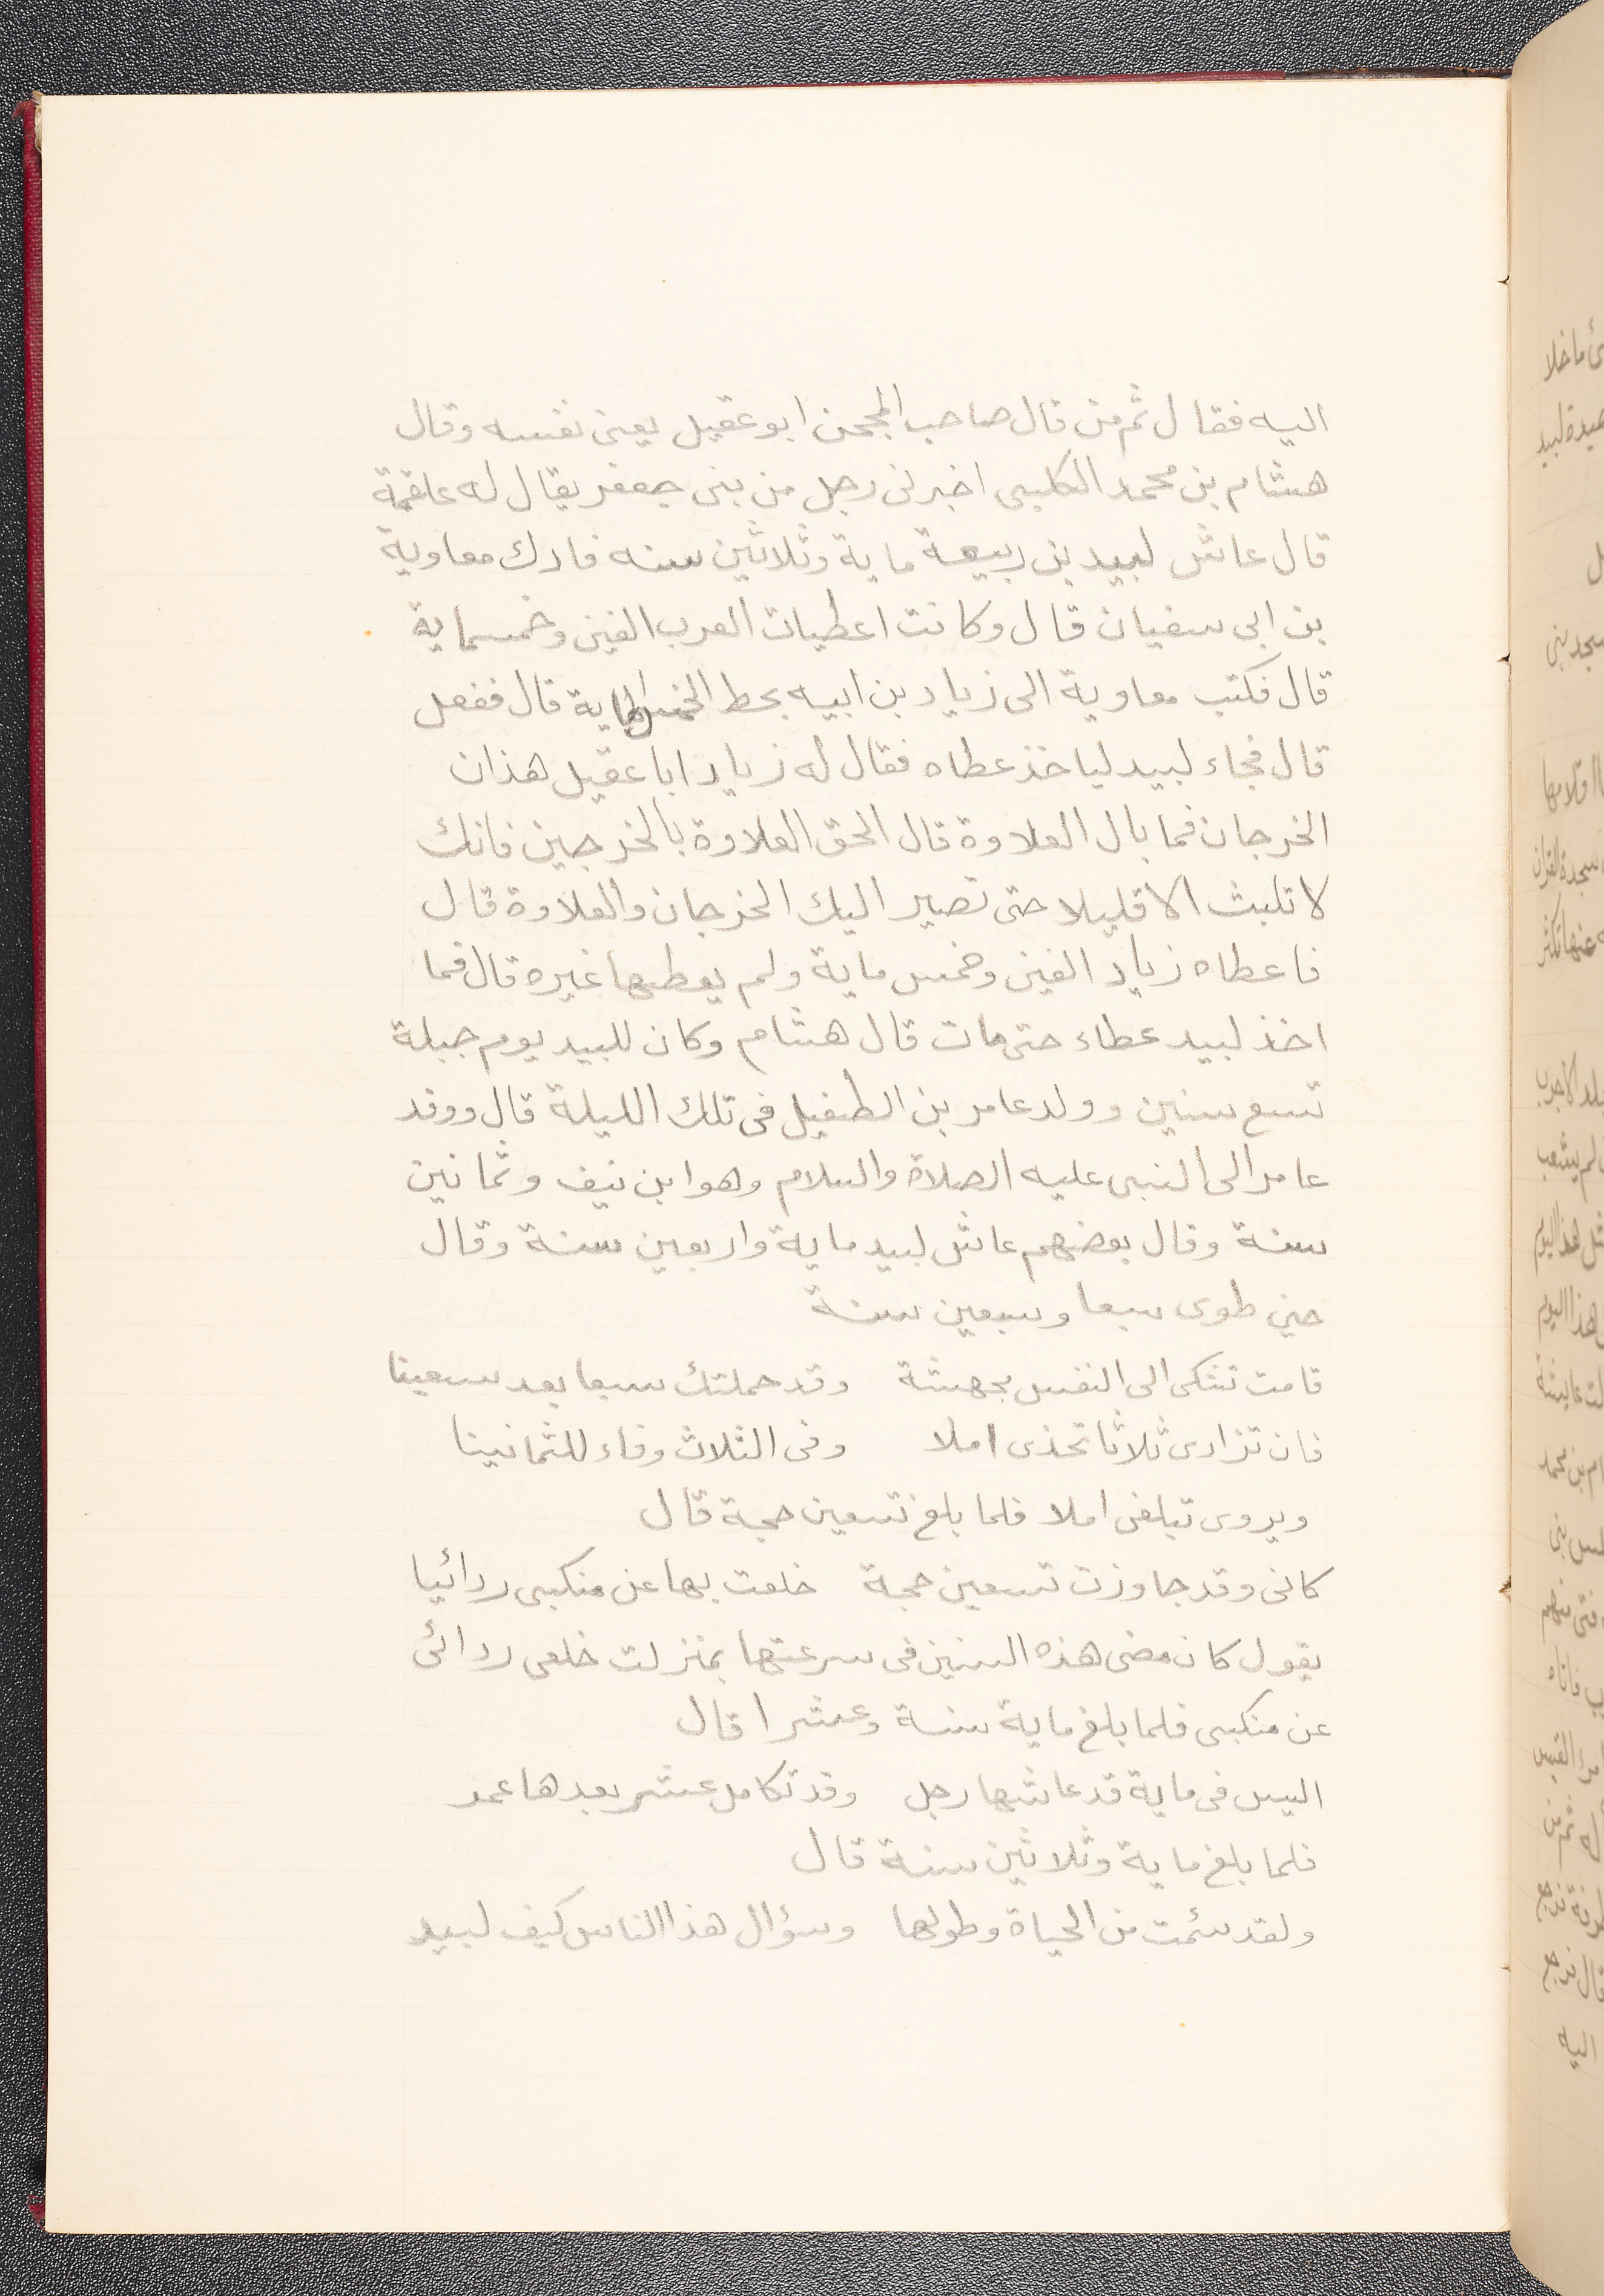 اليه فقال ثم من قال صاحب المحجن ابو عقيل يعنى نفسه وقال
هشام بن محمد الكلبى اخبرنى رجل من بنى جعفر يقال له علقمة
قال عاش لبيد بن ربيعة ماية وثلاثين سنه فادرك معاوية
بن ابى سفيان قال وكانت اعطيات العرب الفين وخمسماية
قال فكتب معاوية الى زياد بن ابيه بحط الخمس الماية قال ففعل
قال فجاء لبيد لياخذ عطاه فقال له زياد ابا عقيل هذان
الخرجان فما بال العلاوة قال الحق العلاوة بالخرجين فانك
لا تلبث الا قليلا حتى تصير اليك الخرجان والعلاوة قال
فاعطاه زياد الفين وخمس ماية ولم يعطها غيره قال فما
اخذ لبيد عطاء حتى مات قال هشام وكان للبيد يوم جبلة
تسع سنين وولد عامر بن الطفيل فى تلك الليلة قال ووفد
عامر الى النبى عليه الصلاة والسلام وهو ابن نيف وثمانين
سنة وقال بعضهم عاش لبيد ماية واربعين سنة وقال
حين طوى سبعا وسبعين سنة
قامت تشكى الى النفس بجهشة وقد حملتك سبعا بعد سبعينا
فان تزادى ثلاثا تحذى املا وفى الثلاث وفاء للثمانينا
ويروى تبلغى املا فلما بلغ تسعين حجة قال
كانى وقد جاوزت تسعين حجة خلعت بها عن منكبى ردائيا
يقول كان مضى هذه السنين فى سرعتها بمنزلت خلعى ردائى
عن منكبى فلما بلغ ماية سنة وعشرا قال
اليس فى ماية قد عاشها رجل وقد تكامل عشر بعدها عمد
فلما بلغ ماية وثلاثين سنة قال
ولقد سئمت من الحياة وطولها وسؤال هذا الناس كيف لبيد